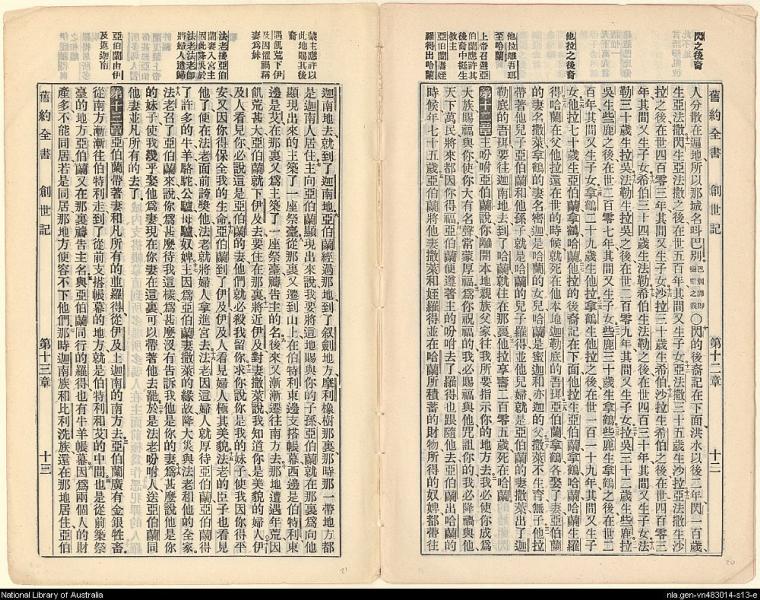 舊約全書 創世記 第十二章 十二
閃之後裔
他拉之後裔
他拉離吾珥
至哈蘭
上帝召選亞
伯蘭應許其
後裔中挺生
救主
亞伯蘭離哈蘭
人分散在遍地所以那城名叫巴別○閃的後裔記在下面洪水以後二年閃一百歲
生亞法撒閃生亞法撒之後在世五百年其間又生子女亞法撒三十五歲生沙拉亞法撒生沙
拉之後在世四百零三年其間又生子女沙拉三十歲生希伯沙拉生希伯之後在世四百零三
年其間又生子女希伯三十四歲生法勒希伯生法勒之後在世四百三十年其間又生子女法
勒三十歲生拉吳法勒生拉吳之後在世二百零九年其間又生子女拉吳三十二歲生些鹿拉
吳生些鹿之後在世二百零七年其間又生子女些鹿三十歲生拿鶴些鹿生拿鶴之後在世二
百年其間又生子女拿鶴二十九歲生他拉拿鶴生他拉之後在世一百一十九年其間又生子
女他拉七十歲生亞伯蘭拿鶴哈蘭他拉的後裔記在下面他拉生亞伯蘭拿鶴哈蘭哈蘭生羅
得哈蘭在父他拉還在世的時候就死在他本地迦勒底的吾珥亞伯蘭拿鶴各娶了妻亞伯蘭
的妻名撒萊拿鶴的妻名密迦是哈蘭的女兒哈蘭是密迦和亦迦的父撒萊不生育無子他拉
帶著他兒子亞伯蘭和他孫子就是哈蘭的兒子羅得並他兒婦就是亞伯蘭的妻撒萊出了迦
勒底的吾珥要往迦南地去到了哈蘭就住在那裏他拉享壽二百零五歲死在哈蘭
第十二章 主吩咐亞伯蘭說你離開本地親族父家往我所要指示你的地方去我必使你成為
大族賜福與你使你大有名聲當蒙厚福為你祝福的我必賜福與他咒詛你的我必降禍與他
天下萬民將來都因你得福亞伯蘭便遵著主的吩咐去了羅得也跟隨他去亞伯蘭出哈蘭的
時候年七十五歲亞伯蘭將他妻撒萊和姪羅得並在哈蘭所積蓄的財物所得的奴婢都帶往
舊約全書 創世記 第十三章 十三
蒙主應許以
此地賜其後
裔
妻為妹
法老接亞伯
蘭妻入宮主
因此降災於
法老法老卽
將婦人遣歸
亞伯蘭由伊
及返迦南
迦南地去就到了迦南地亞伯蘭經過那地到了
是迦南人居住主向亞伯蘭顯現出來說我要將這地賜與你的子孫亞伯蘭就在那裏為向他
顯現出來的主築了一座祭臺從那裏又遷到山上在伯特利東邊支搭帳幕西邊是伯特利東
邊是艾在那裏又為主築了一座祭臺禱告主的名後來又漸漸遷往南方去那地遭遇年荒因
飢荒甚大亞伯蘭就下伊及去要住在那裏將近伊及對妻撒萊說我知道你是美貌的婦人伊
及人看見你必說這是亞伯蘭的妻他們就必殺我我留你求你說你是我的妹子使我因你得平
安又因你得保全我的生命亞伯蘭到了伊及伊及人看見婦人極其美貌法老的臣子也看見
他了便在法老面前誇獎他法老就將婦人拿進宮去法老因這婦人就厚待亞伯蘭亞伯蘭得
了許多的牛羊駱駝公驢母驢奴婢主因亞伯蘭妻撒萊的緣故降大災與法老和他的全家
法老召了亞伯蘭來說你為甚麼待我這樣為甚麼沒有告訴我他是你的妻為甚麼說他是你
的妹子使我幾乎娶他為妻現在你妻在這裏可以帶著他去罷於是法老吩咐人送亞伯蘭同
他妻並凡所有的去了
第十三章 亞伯蘭帶著妻和凡所有的並羅得從伊及上迦南的南方去亞伯蘭廣有金銀牲畜
從南方漸漸往伯特利走到了從前支搭帳幕的地方就是伯特利和艾的中間也是從前築祭
臺的地方亞伯蘭又在那裏禱告主名與亞伯蘭同行的羅得也有牛羊帳幕因為兩個人的財
產多不能同居若是同居那地方便容不下他們那時迦南族和比利洗族還在那地居住亞伯
National Library of Australia
nla.gen-vn483014-s13-e